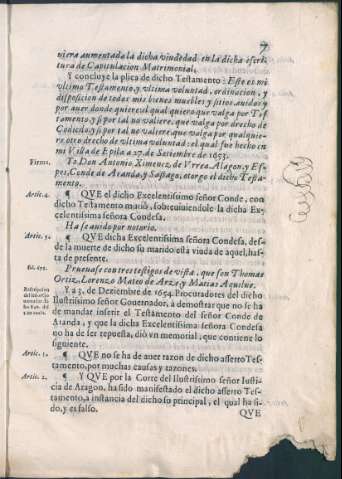 7
uiera aumentada la dicha viudedad en la dicha escri-
tura de Capitulacion Matrimonial.
Y concluye la plica de dicho Testamento: Este es mi
vltimo Testamento, y vltima voluntad, ordinacion, y
disposicion de todos mis bienes muebles y sitios auidos y
por auer donde quiere el qual quiero que valga por Tes-
tamento, y si por tal no valiere, que valga por drecho de
Codicilo, y si por tal no valiere que valga por qualquie-
re otro drecho de vltima voluntad: el qual fue hecho en
mi Villa de Epila a 27. de Setiembre de 1653.
Firma. Yo Don Antonio Ximenez de Vrrea Alagon, y Es-
pes, Conde de Aranda, y Sastago, otorgo el dicho Testa-
mento.
Artic. 4. ¶ QVE el dicho Excelentissimo señor Conde, con
dicho Testamento murio, sobreuiuiendole la dicha Ex-
celentissima señora Condesa.
Ha se auido por notorio.
Artic. 5. ¶ QVE dicha Excelentissima señora Condesa, des-
de la muerte de dicho su marido está viuda de aquel, has-
ta de presente.
Prueuase con tres testigos de vista, que son Thomas
Ortiz, Lorenzo Mateo de Arze, y Matias Aquilue.
Y a 3. de Deziembre de 1654. Procuradores del dicho
Ilustrissimo señor Gouernador, à demostrar que no se ha
de mandar inserir el Testamento del señor Conde de
Aranda, y que la dicha Excelentissima señora Condesa
no ha de ser repuesta, diò vn memorial, que contiene lo
siguiente.
Artic. 1. ¶ QVE no se ha de auer razon de dicho asserto Tes-
tamento, por muchas causas y razones.
Artic. 2. ¶ Y QVE por la Corte del Ilustrissimo señor Iusti-
cia de Aragon, ha sido manifestado el dicho asserto Tes-
tamento, a instancia del dicho so principal, el qual ha si-
do, y es falso.
QVE